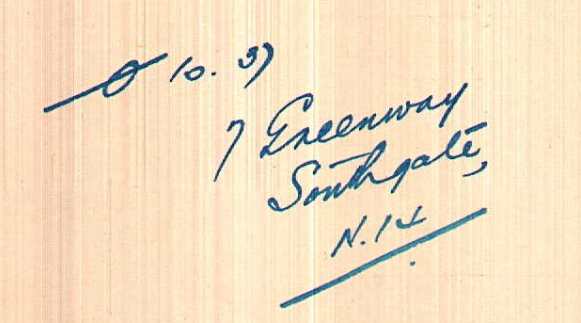 10. 37
7 Greenway
Southgate,
N. 14